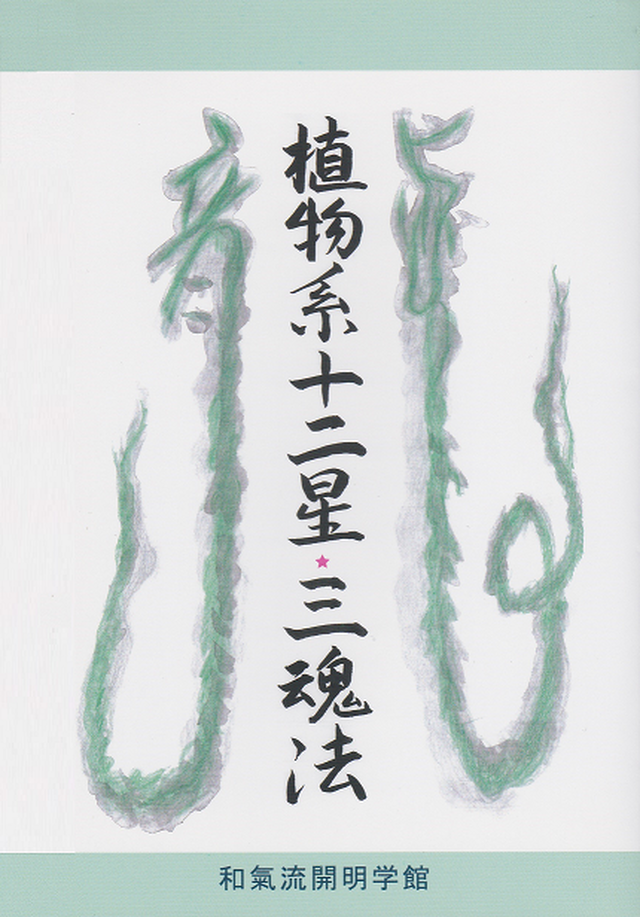 植物系十二星★三魂法
和氣流開明学館